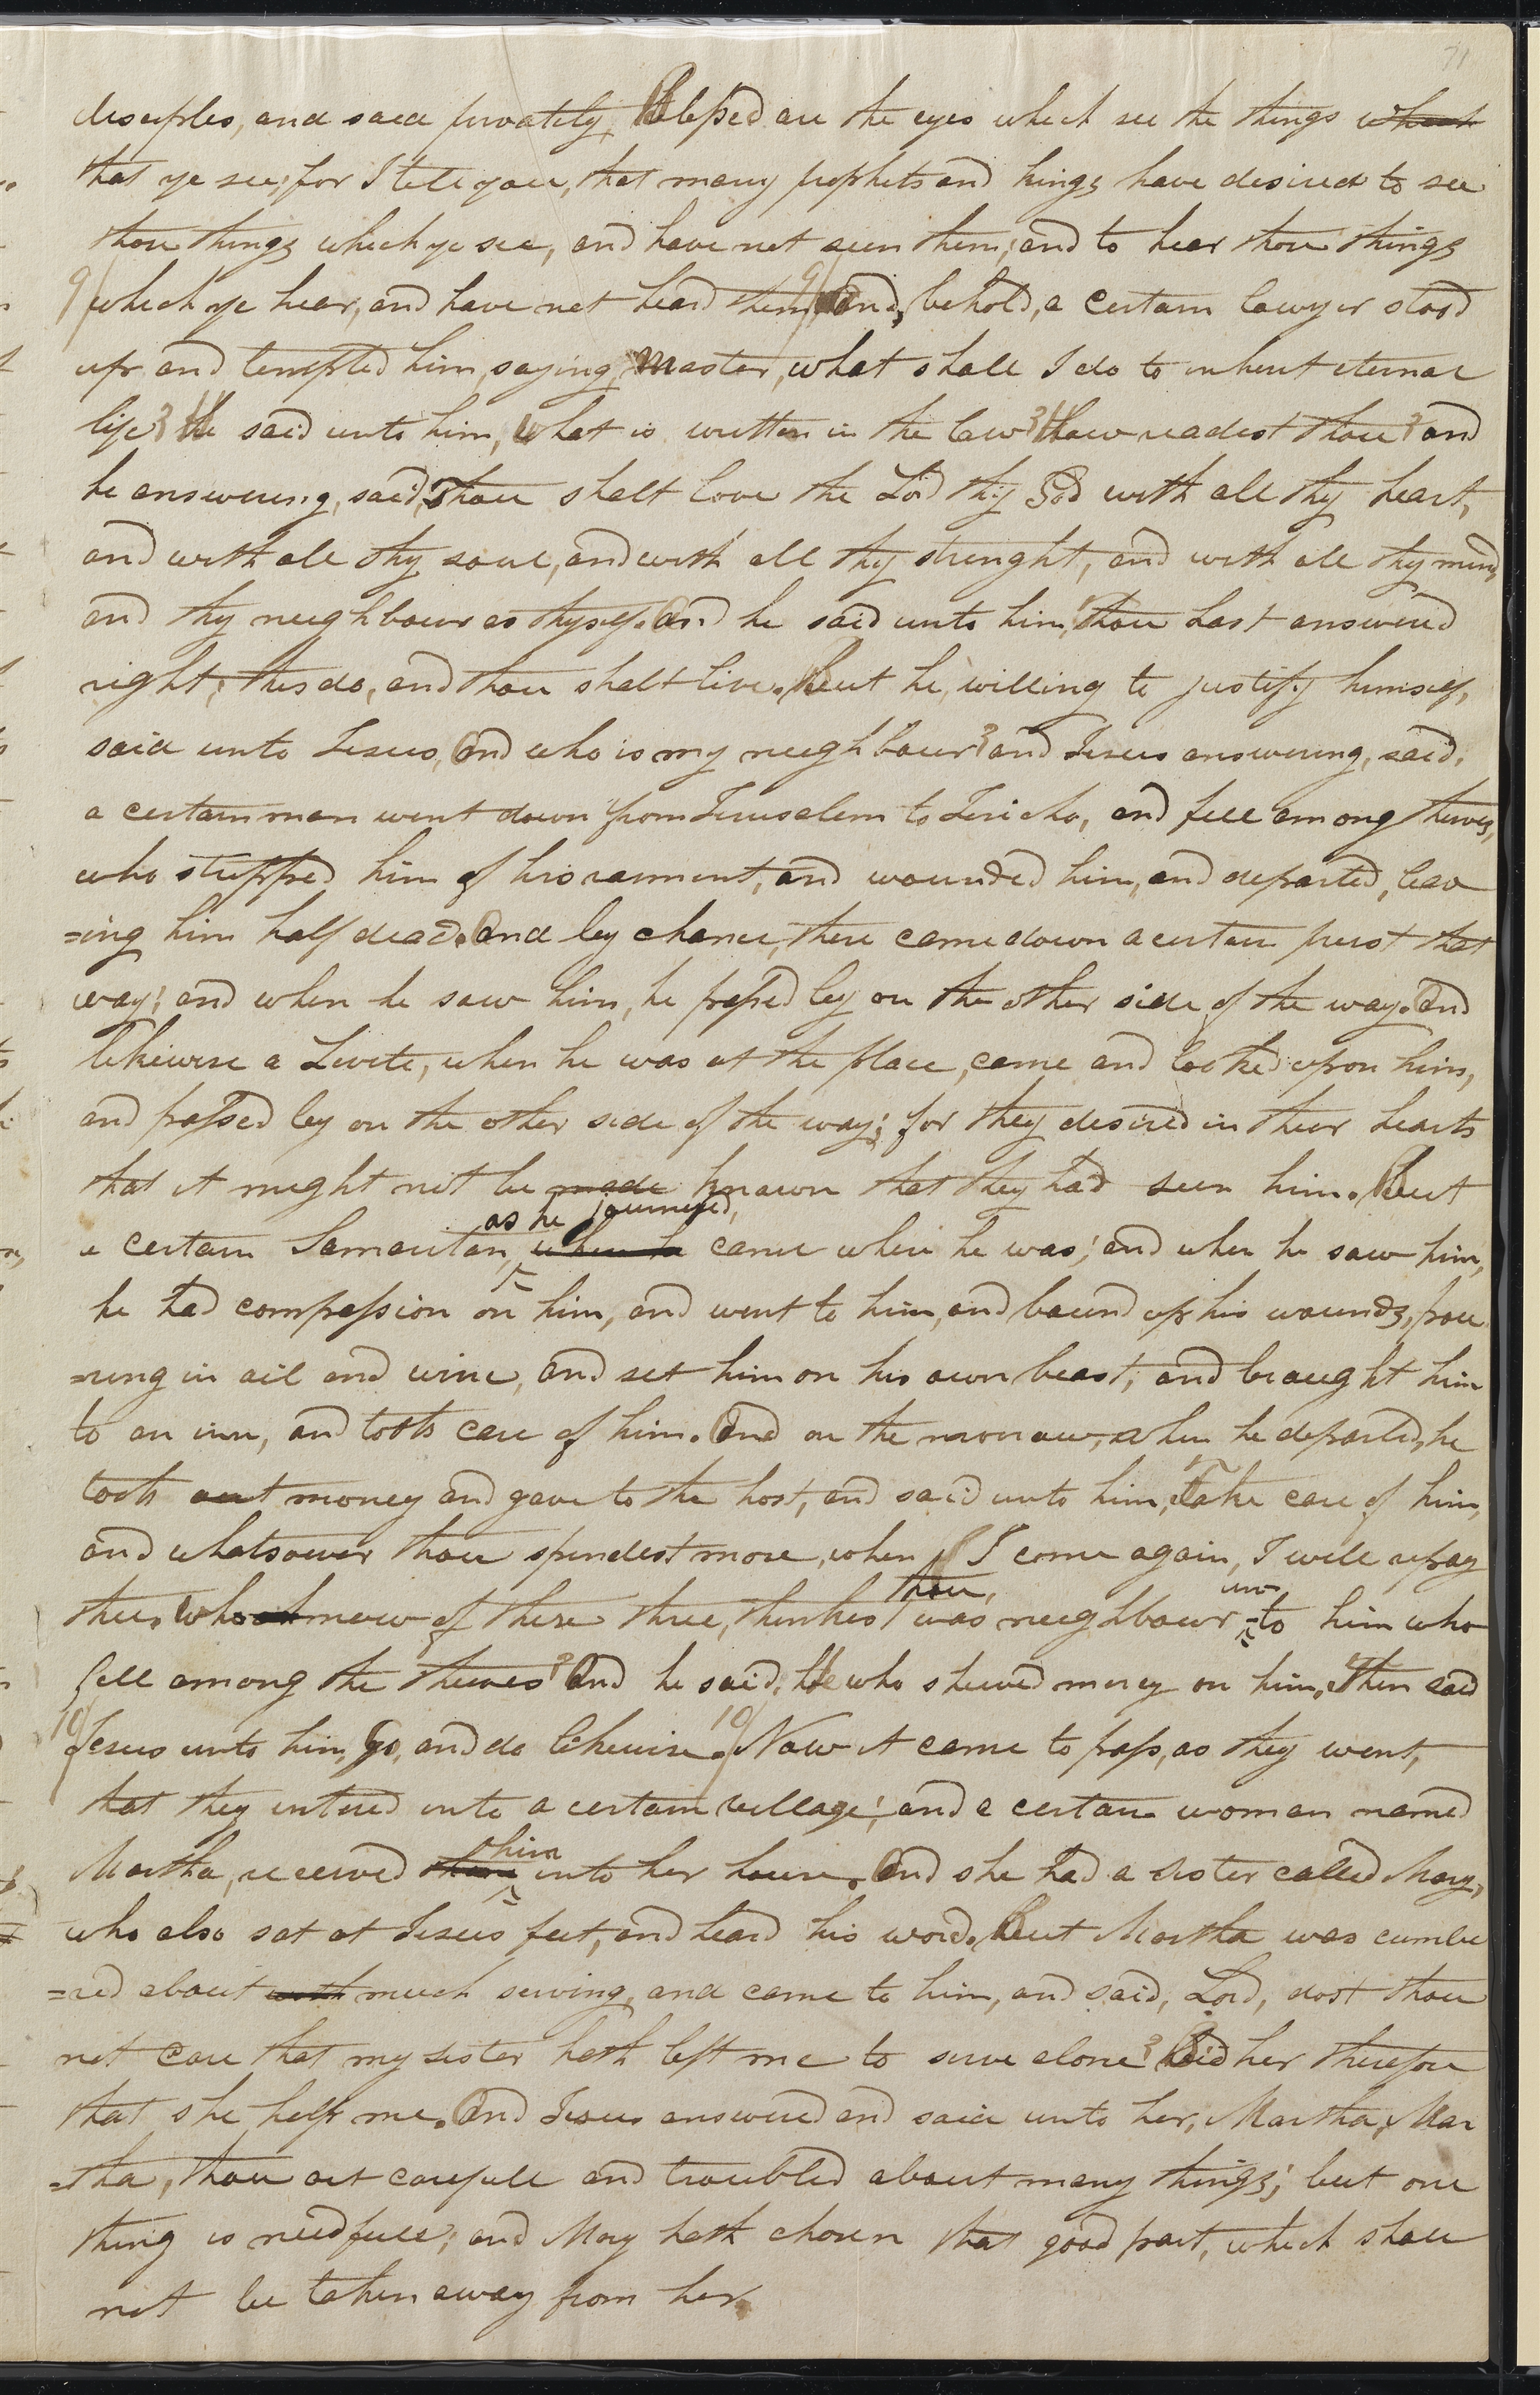 71
disciples, and said privately, Blessed are the eyes which see the things which
that ye see; for I tell you, that many prophets and kings have desired to see
those things which ye see, and have not seen them; and to hear those things
9 which ye hear, and have not heard them. 9 And, behold, a certain lawyer stood
up and tempted him, saying, Master, what shall I do to inherit eternal
life? He said unto him, What is written in the law? How readest thou? and
he answering, said, Thou shalt love the Lord thy God with all thy heart,
and with all thy soul, and with all thy strenght, and with all thy mind,
and thy neighbour as thyself. And he said unto him, Thou hast answered
right; this do, and thou shalt live. But he, willing to justify himself,
said unto Jesus, And who is my neighbour? and Jesus answering, said,
a certain man went down from Jerusalem to Jericho, and fell among thieves,
who stripped him of his raiment, and wounded him, and departed, leav
=ing him half dead. And by chance, there came down a certain priest that
way; and when he saw him, he passed by on the other side of the way. And
likewise a Levite, when he was at the place, came and looked upon him,
and passed by on the other side of the way; for they desired in their hearts
that it might not be made known that they had seen him. But
as he journeyed,
a certain Samaritan, when he came where he was; and when he saw him,
he had compassion on him, and went to him, and bound up his wounds, pou
=ring in oil and wine, and set him on his own beast, and brought him
to an inn, and took care of him. And on the morrow, when he departed, he
took out money and gave to the host, and said unto him, Take care of him,
and whatsoever thou spendest more, when I come again, I will repay
thou, un
thee. Who now of these three, thinkest was neighbour to him who
fell among the thieves? And he said, He who shewed mercy on him. Then said
10 Jesus unto him, go, and do likewise. 10 Now it came to pass, as they went,
that they entered into a certain village; and a certain woman named
him
Martha, received them into her house. And she had a sister called Mary,
who also sat at Jesus feet, and heard his word. But Martha was cumbe
=red about with much serving, and came to him, and said, Lord, dost thou
not care that my sister hath left me to serve alone? Bid her therefore
that she help me. And Jesus answered and said unto her, Martha, Mar
=tha, thou art carefull and troubled about many things; but one
thing is needfull; and Mary hath chosen that good part, which shall
not be taken away from her.